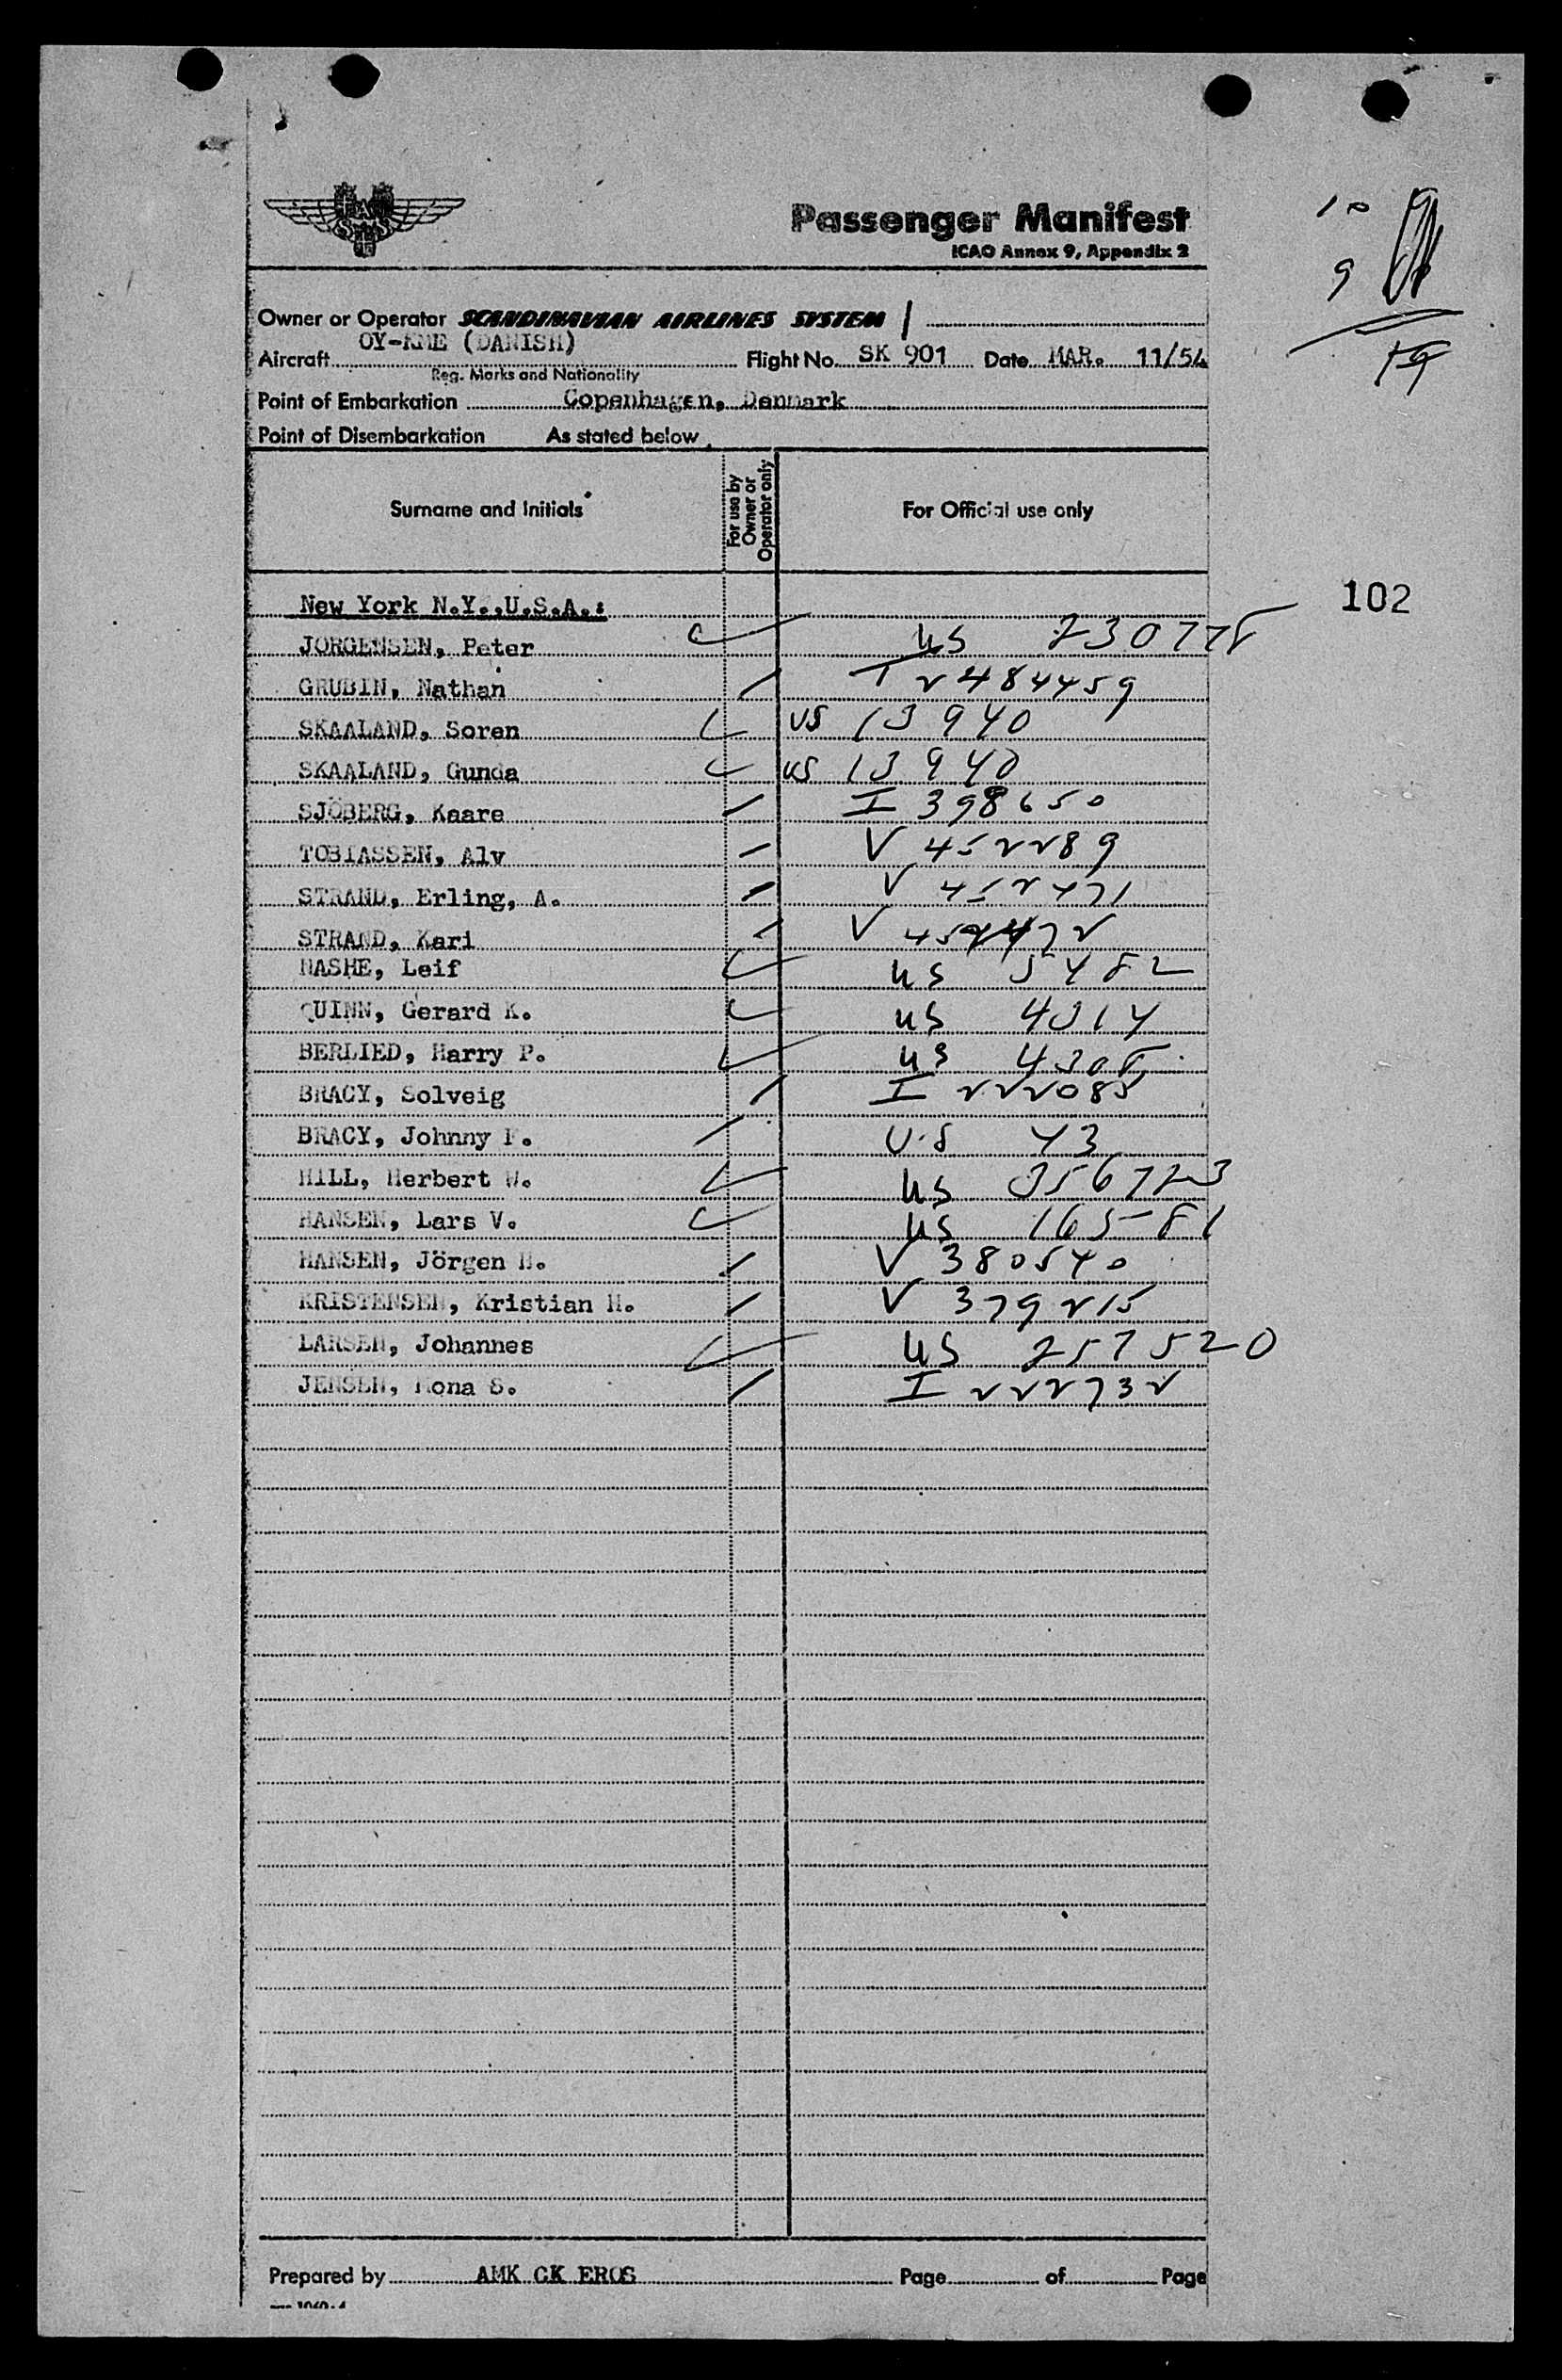 Passenger Manifest
ICAO Annex 9, Appendix 2
10
9
19
Owner or Operator SCANDINAVIAN AIRLINES SYSTEM /
OY-KME (DANISH)
Aircraft Flight No. SK 901 Date MAR. 11/54
Reg. Marks and Nationality
Point of Embarkation Copenhagen, Denmark
Point of Disembarkation As stated below
Surname and Initials For use by Owner or Operator only For Official use only
New York N.Y.,U.S.A.:
102
JORGENSEN, Peter US
GRUBIN, Nathan 2484459
SKAALAND, Soren US 13940
SKAALAND, Gunda US 13940
SJÖBERG, Kaare I 398650
TOBIASSEN, Alv V 452289
STRAND, Erling, A. V 452471
STRAND, Kari V
Leif US 5482
QUINN, Gerard K. US 4314
BERLIED, Harry P. US
BRACY, Solveig I 222085
BRACY, Johnny F. U.S 43
HILL, Herbert W. US
HANSEN, Lars V. US 16581
HANSEN, Jörgen H. V 380540
KRISTENSEN, Kristian H. V 379215
LARSEN, Johannes US 257520
JENSEN, Mona S. I 222732
Prepared by AMK CK EROS Page of Page